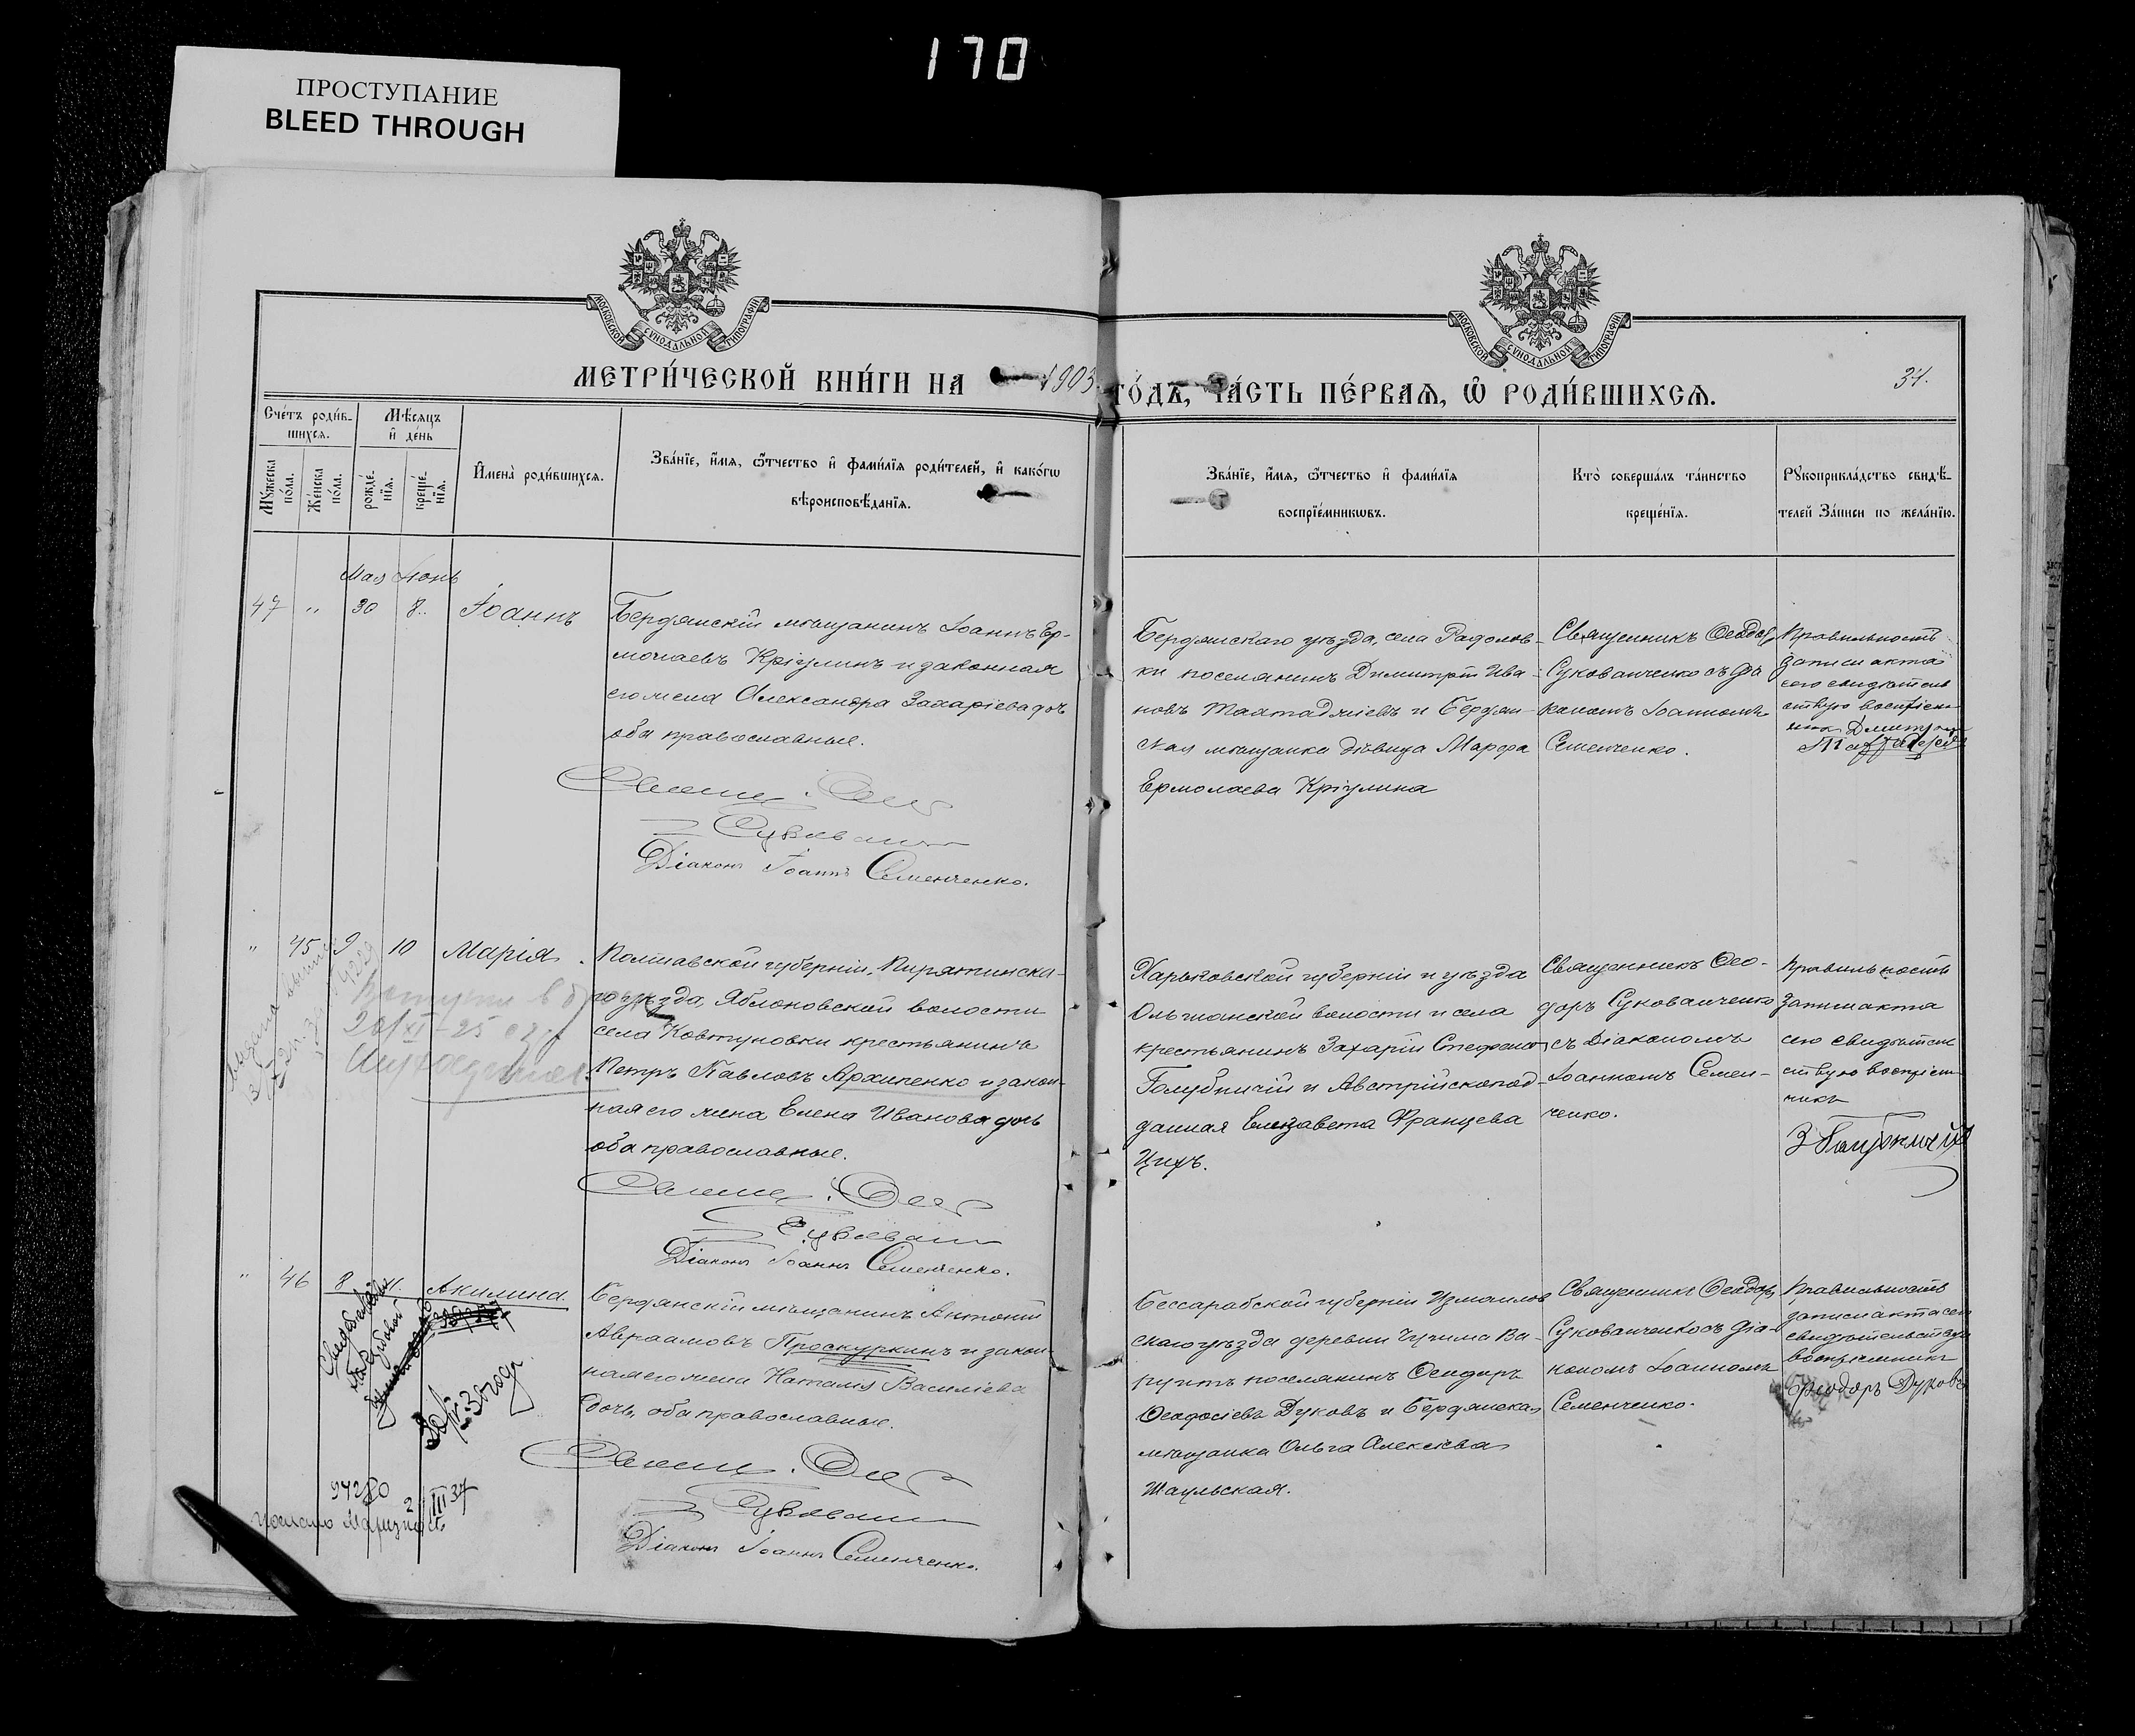 170
ПРОСТУПАНИЕ
BLEED THROUGH
МОСКОВСКОЙ СУНОДАЛЬНОЙ ТИПОГРАФІИ
МОСКОВСКОЙ СУНОДАЛЬНОЙ ТИПОГРАФІИ
МЕТРИ́ЧЕСКОЙ КНИ́ГИ НА 1903 ГО́ДЪ, ЧА́СТЬ ПЕ́РВАЯ, Ѽ РОДИ́ВШИХСЯ.
34.
Сче́тъ роди́в-
шихся.
Мѣ́сяцъ
и҆ де́нь
Мꙋ́жеска по́ла.
Же́нска по́ла.
рожде́-
нїя.
креще́-
нїя.
И҆мена̀ роди́вшихся.
Зва́нїе, и҆́мя, ѻ҆́тчество и҆ фами́лїя роди́телей, и҆ како́гѡ
вѣроисповѣ́данїя.
Зва́нїе, и҆́мя, ѻ҆́тчество и҆ фами́лїя
воспрїе́мникѡвъ.
Кто̀ соверша́лъ та́инство
креще́нїя.
Рꙋкоприкла́дство свидѣ́-
телей за́писи по жела́нїю.
Мая Іюнь
47 " 30 8 Іоаннъ
Бердянскій мѣщанинъ Іоаннъ Ер-
молаевъ Кріулинъ и законная
его жена Александра Захаріева дочь
оба православные.
Діаконъ Іоаннъ Семенченко.
Бердянскаго уѣзда, села
ки поселянинъ Димитрій Ива-
новъ и Бердян-
ская мѣщанка дѣвица Марфа
Ермолаева Кріулина
Священникъ Ѳеодоръ
Сукованченко съ діа
кономъ Іоанномъ
Семенченко.
Правильность
записи акта
сего свидѣтель
ствую воспріем
никъ Дмитрій
" 45 9 10 Марія.
Полтавской губерніи, Пирятинска-
го уѣзда, Яблоновской волости
села Ковтуновки крестьянинъ
Петръ Павловъ Архипенко и закон-
ная его жена Елена Иванова дочь
оба православные.
Діаконъ Іоаннъ Семенченко.
Харьковской губерніи и уѣзда
Ольшанской волости и села
крестьянинъ Захарій Стефановъ
Голубничій и Австрійскопод-
данная Елизавета Францева
Цихъ.
Священникъ Ѳео-
доръ Сукованченко
съ Діакономъ
Іоанномъ Семен-
ченко.
Правильность
записи акта
сего свидѣтель
ствую воспріем
никъ
З Голубничій
" 46 8 11. Акилина.
Бердянскій мѣщанинъ Антоній
Авраамовъ Проскуркинъ и закон-
ная его жена Наталія Василіева
дочь, оба православные.
Діаконъ Іоаннъ Семенченко.
Бессарабской губерніи Измаилов
скаго уѣзда деревни Чушма Ва-
руитъ поселянинъ Ѳеодоръ
Ѳеодосіевъ Дуковъ и Бердянская
мѣщанка Ольга Алексѣева
Шаульская.
Священникъ Ѳеодоръ
Сукованченко съ діа-
кономъ Іоанномъ
Семенченко.
Правильность
записи акта сего
свидѣтельствую
воспріемникъ
Ѳеодоръ Дуковъ